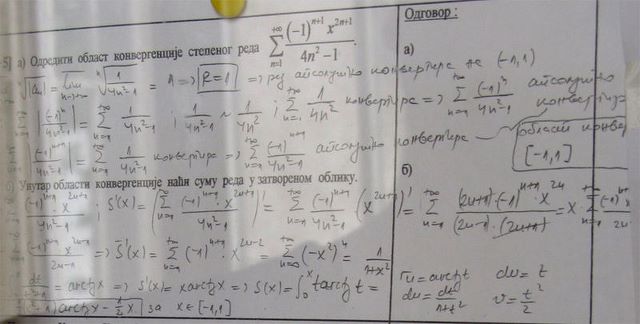 5] а) Одредити област конвергенције степеног реда \sum_{n=1}^{+\infty} \frac{(-1)^{n+1} x^{2n+1}}{4n^2-1}.
Одговор :
а)
\sqrt[n]{|a_n|} = \lim_{n\to\infty} \sqrt[n]{\frac{1}{4n^2-1}} = 1 => R=1 => ред апсолутно конвергира на (-1,1)
\left|\frac{(-1)^n}{4n^2-1}\right| = \sum_{n=1}^{+\infty} \frac{1}{4n^2-1} ; \frac{1}{4n^2-1} \sim \frac{1}{4n^2} ; \sum_{n=1}^{+\infty} \frac{1}{4n^2} конвергира => \sum_{n=1}^{+\infty} \frac{(-1)^n}{4n^2-1} апсолутно
\left|\frac{(-1)^{n+1}}{4n^2-1}\right| = \sum_{n=1}^{+\infty} \frac{1}{4n^2-1} конвергира => \sum_{n=1}^{+\infty} \frac{(-1)^{n+1}}{4n^2-1} апсолутно конвергира
[-1,1]
Унутар области конвергенције наћи суму реда у затвореном облику.
б)
\frac{(-1)^{n+1} x^{2n+1}}{4n^2-1} ; S'(x) = \left(\sum_{n=1}^{+\infty} \frac{(-1)^{n+1} x^{2n+1}}{4n^2-1}\right)' = \sum_{n=1}^{+\infty} \frac{(-1)^{n+1}}{4n^2-1} (x^{2n+1})' = \sum_{n=1}^{+\infty} \frac{(2n+1)(-1)^{n+1} x^{2n}}{(2n-1)(2n+1)} = x \sum_{n=1}^{+\infty}
\frac{(-1)^{n+1} x^{2n-1}}{2n-1} => S'(x) = \sum_{n=1}^{+\infty} (-1)^{n+1} \cdot x^{2n-2} = \sum_{n=0}^{+\infty} (-x^2)^n = \frac{1}{1+x^2}
= arctgx => S'(x) = x arctgx => S(x) = \int_0^x t arctg t =
arctgx - \frac{1}{2}x за x ∈ [-1,1]
u = arctgt dv = t
du = \frac{dt}{1+t^2} v = \frac{t^2}{2}